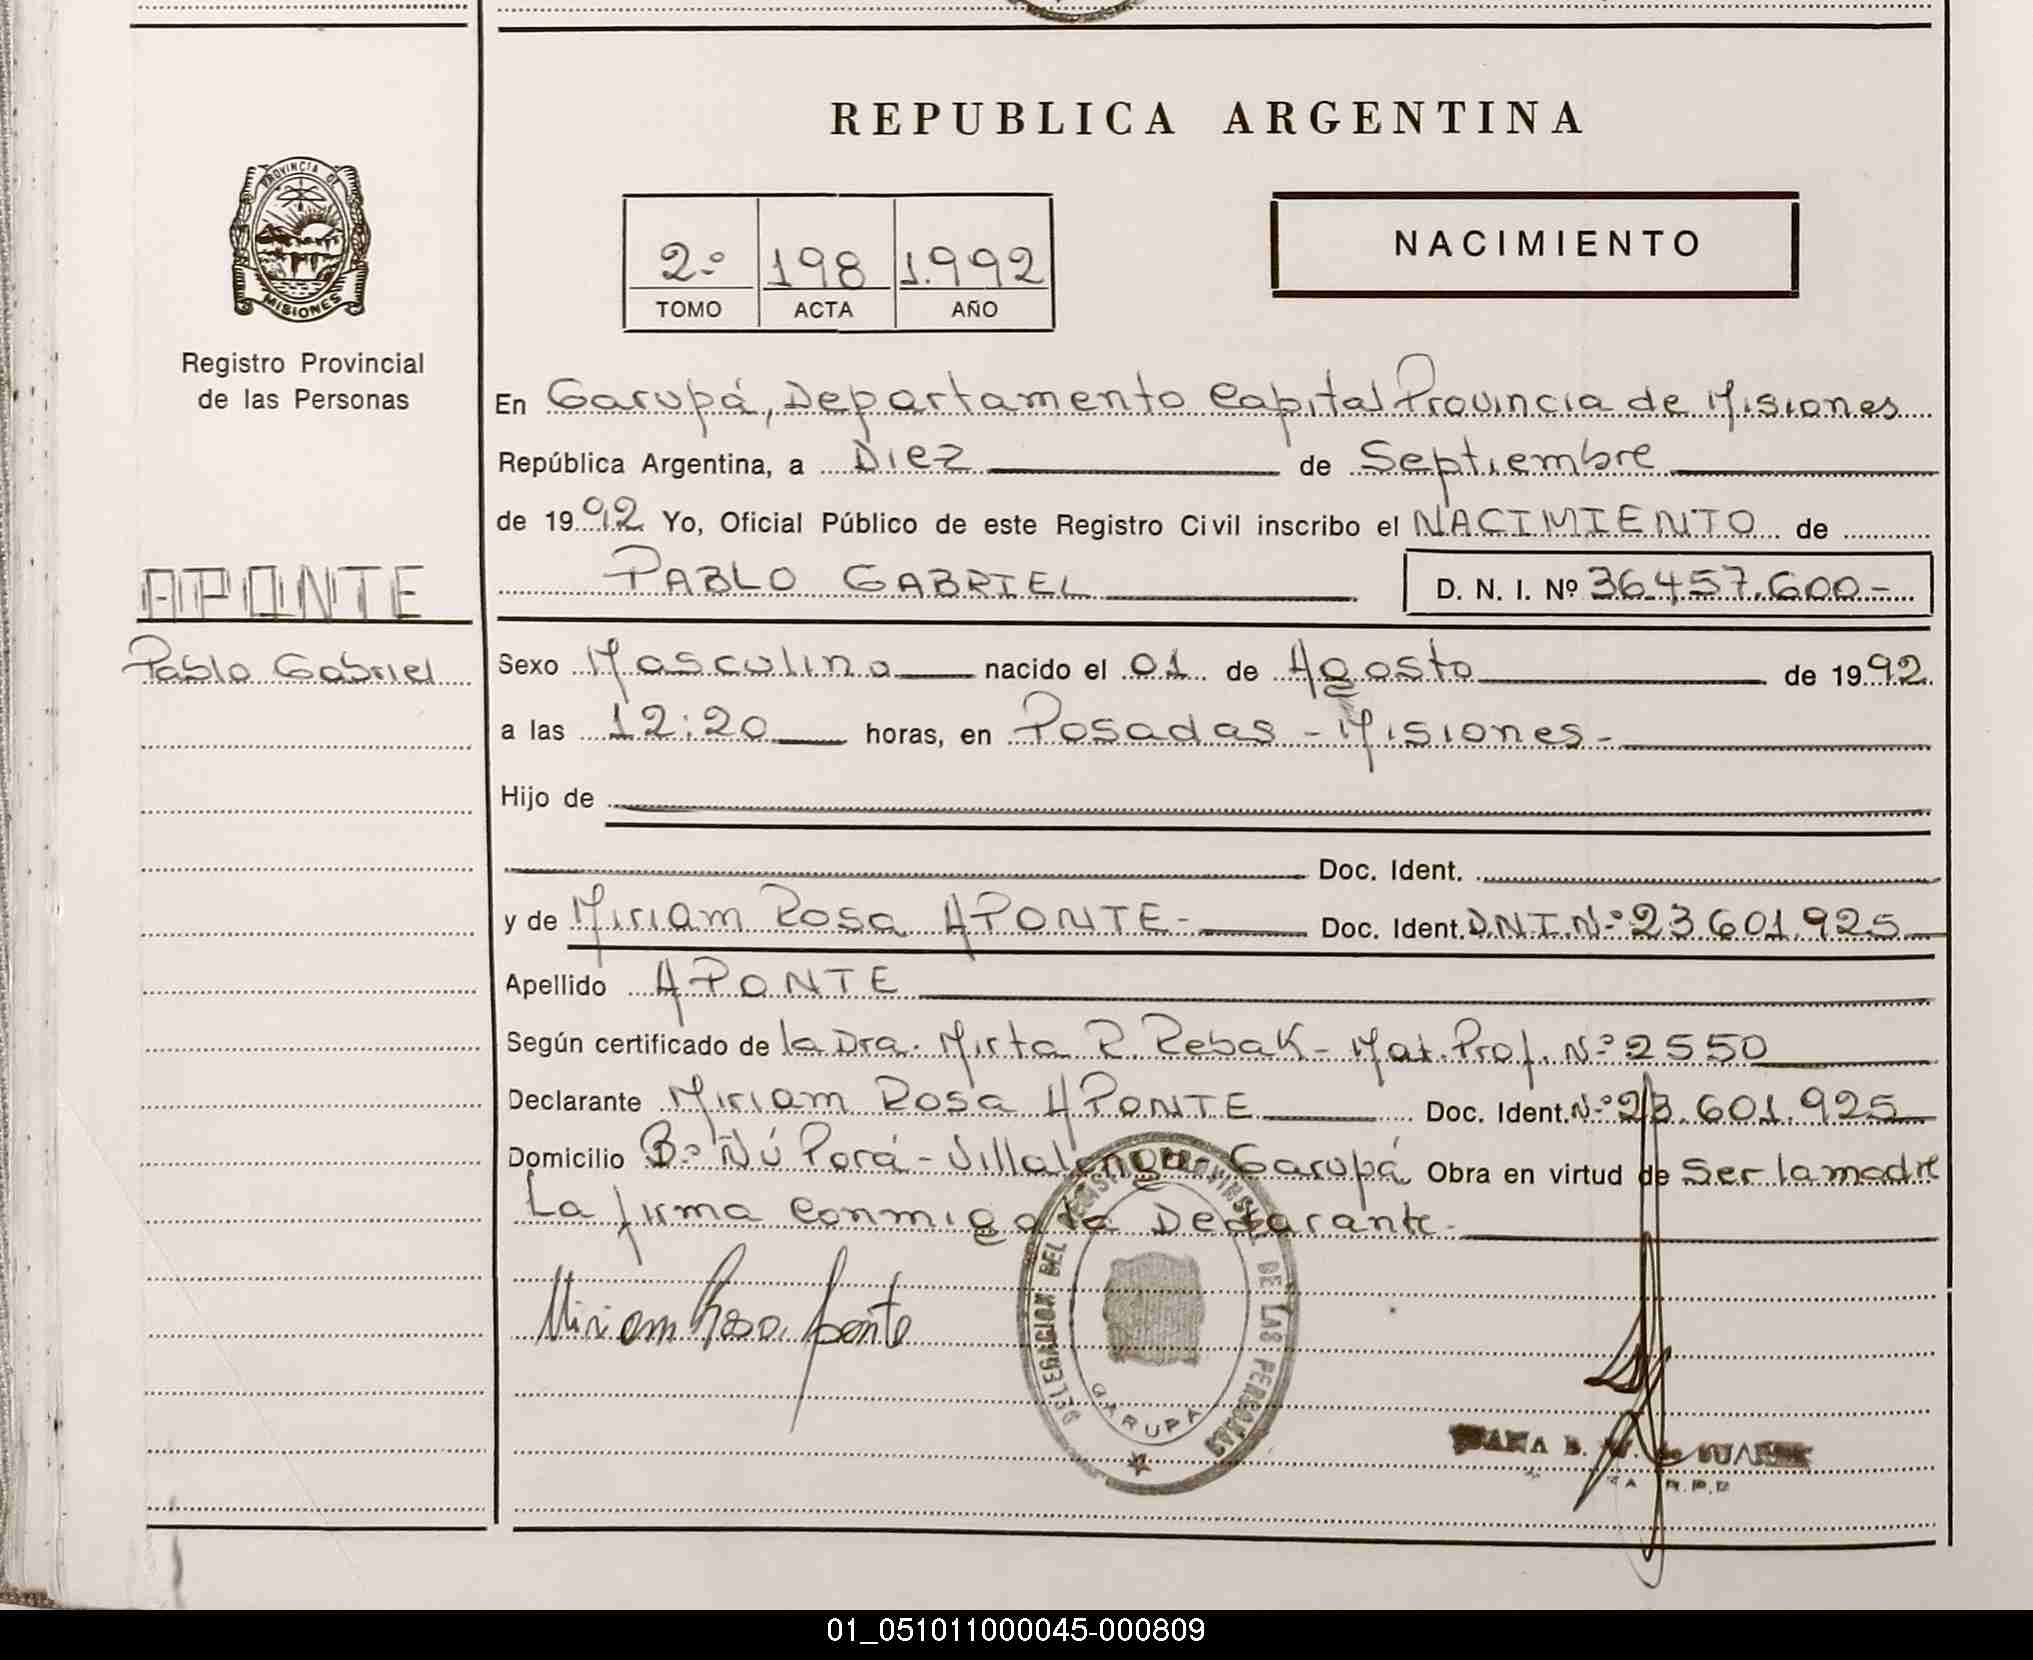 REPUBLICA ARGENTINA
PROVINCIA DE
MISIONES
Registro Provincial
de las Personas
2º 198 1.992
TOMO ACTA AÑO
NACIMIENTO
En Garupá, Departamento Capital Provincia de Misiones
República Argentina, a Diez de Septiembre
de 1992 Yo, Oficial Público de este Registro Civil inscribo el NACIMIENTO de
PABLO GABRIEL D. N. I. Nº 36.457.600-
APONTE
Pablo Gabriel
Sexo Masculino nacido el 01 de Agosto de 1992
a las 12:20 horas, en Posadas - Misiones-
Hijo de
Doc. Ident.
y de Miriam Rosa APONTE- Doc. Ident. D.N.I.Nº 23.601.925
Apellido APONTE
Según certificado de la Dra. Mirta R. Rebak - Mat. Prof. Nº 2550
Declarante Miriam Rosa APONTE Doc. Ident. Nº 23.601.925
Domicilio Bº Ñú Porá - Villalonga - Garupá Obra en virtud de Ser la madre
La firma conmigo la Declarante-
Miriam Rosa Aponte
DELEGACION DEL REGISTRO PROVINCIAL DE LAS PERSONAS
GARUPA
01_051011000045-000809